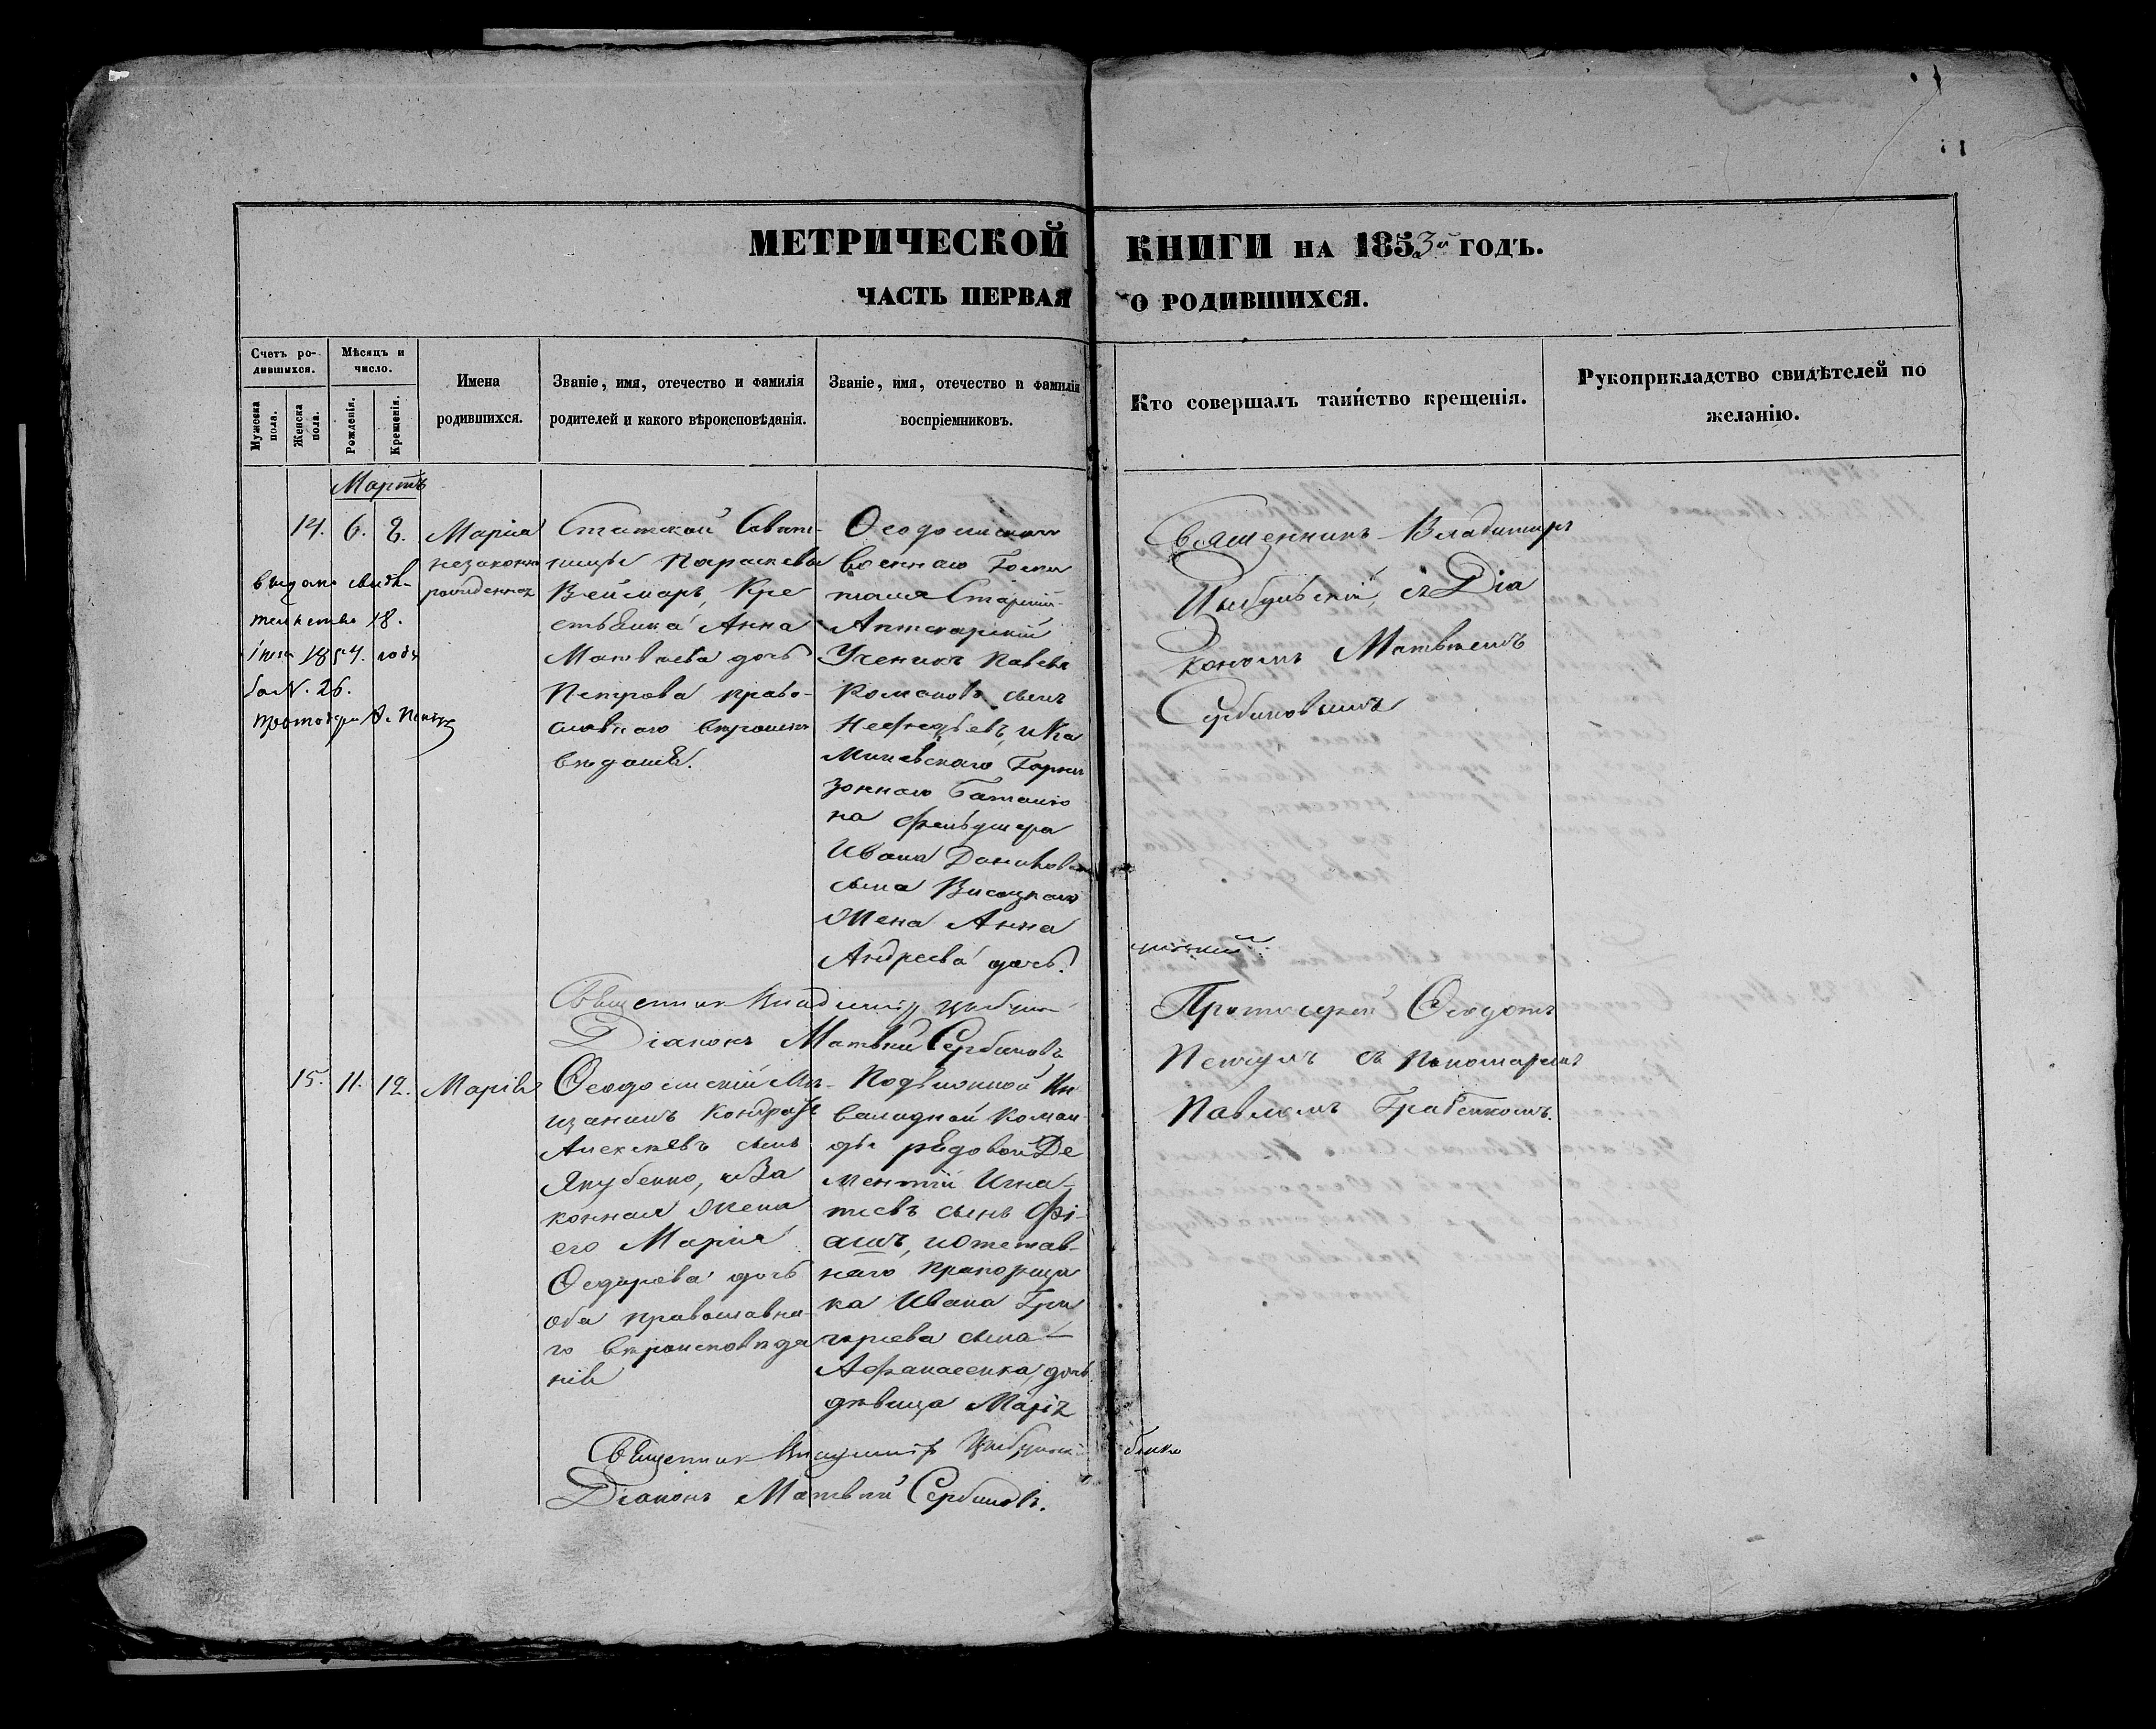 МЕТРИЧЕСКОЙ КНИГИ НА 1853й ГОДЪ.
ЧАСТЬ ПЕРВАЯ О РОДИВШИХСЯ.
Счетъ ро-
дившихся.
Мужеска
пола.
Женска
пола.
Мѣсяцъ и
число.
Рожденія.
Крещенія.
Имена
родившихся.
Званіе, имя, отечество и фамилія
родителей и какого вѣроисповѣданія.
Званіе, имя, отечество и фамилія
воспріемниковъ.
Кто совершалъ таинство крещенія.
Рукоприкладство свидѣтелей по
желанію.
Мартъ
14. 6. 8.
Марія
незаконно
рожденная
выдано свидѣ-
тельство 18.
1854. года
за N. 26.
Статской Совѣт-
ницы Параскевы
Веймаръ, Кре
стьянка Анна
Матвѣева дочь
Петрова право-
славнаго вѣроиспо
вѣданія.
Ѳеодосійскаго
военнаго Госпи
таля Старшій
Аптекарскій
Ученикъ Павелъ
Романовъ сынъ
Нефедьевъ, и Ка
Гарни
зоннаго Баталіо
на фельдшера
Ивана Данилова
сына Висоцкаго
жена Анна
Андреева дочь.
Священникъ Владимиръ
Цыбульскій, съ Діа
кономъ Матвѣемъ
Сербиновымъ
Священник Владимир Цыбуль
скій.
Діаконъ Матвѣй Сербиновъ
15. 11. 12.
Марія
Ѳеодосійскій Мѣ-
щанинъ Кондратъ
Алексѣевъ сынъ
Якубенко, и За
конная жена
его Марія
Ѳедорова дочь
оба православна-
го вѣроисповѣда
нія
Подвижной Ин
валидной Коман
ды рядовой Де
ментій Игна-
тіевъ сынъ Фі-
алъ, и отстав-
наго прапорщи
ка Ивана Гри
горіева сына
Афанасенка, дочь
дѣвица Марія
Протоіерей Ѳеодотъ
съ пономаремъ
Павломъ Грабенкомъ.
Священник Владимир Цыбульскій
Діаконъ Матвѣй Сербиновъ.